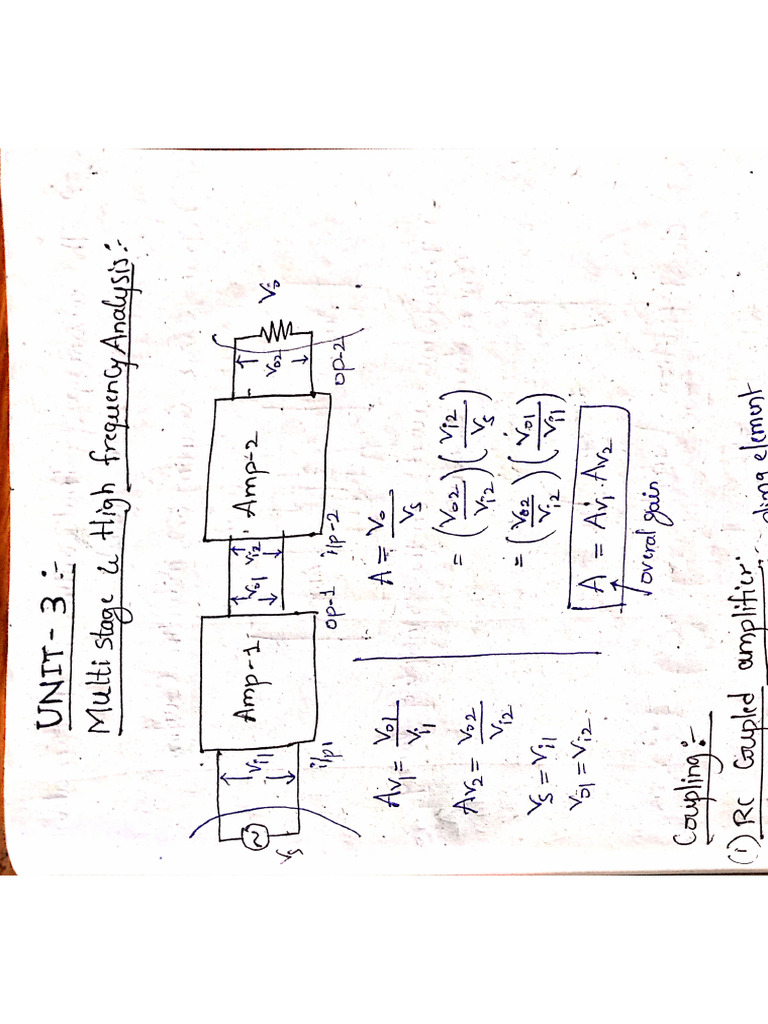 UNIT-3:-
Multi stage & High frequency Analysis:-
Vs
Vi1
i/p1
Amp-1
Vo1
Vi2
op-1
i/p-2
Amp-2
Vo2
op-2
Vo
Av1 = Vo1/Vi1
Av2 = Vo2/Vi2
Vs = Vi1
Vo1 = Vi2
A = Vo/Vs
= (Vo2/Vi2) (Vi2/Vs)
= (Vo2/Vi2) (Vo1/Vi1)
A = Av1 . Av2
overal gain
Coupling:-
(i) RC Coupled amplifier:
element